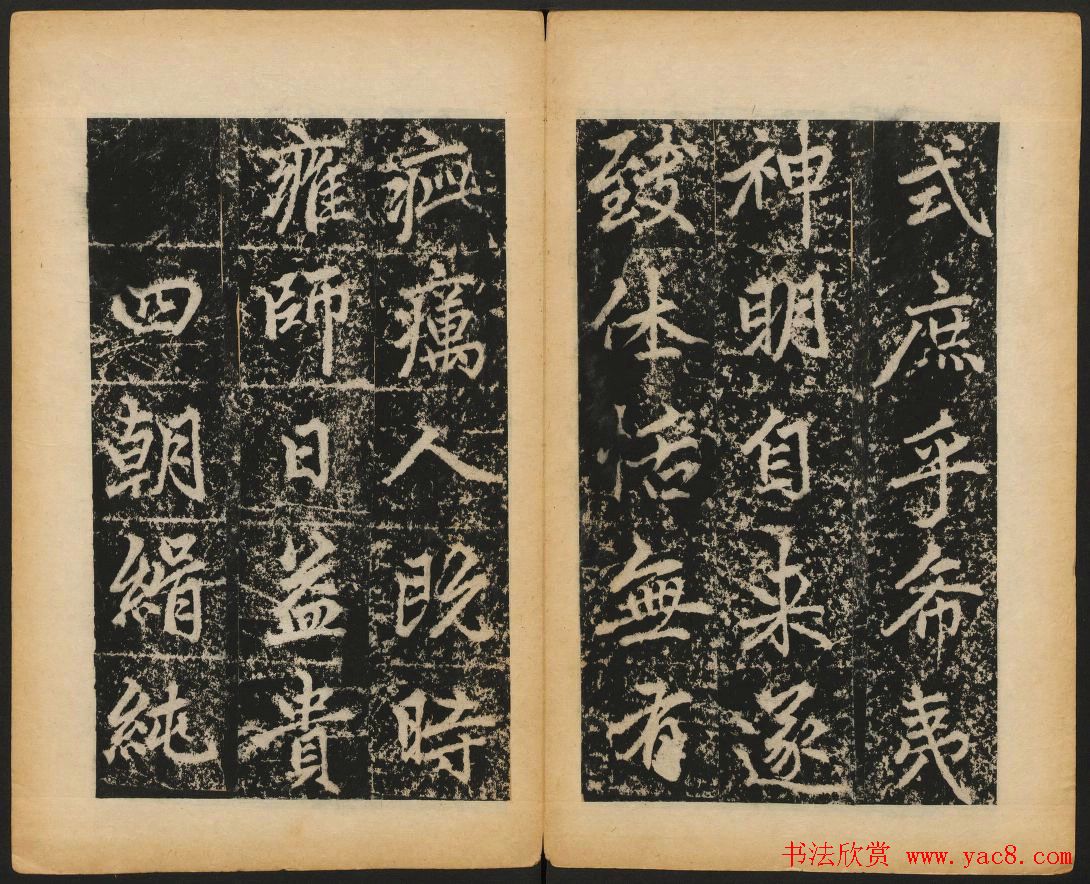 式庶乎希夷
神明自来遂
致休浯無有
疵癘人既時
雍師日益貴
四朝緝純
书法欣赏 www.yac8.com